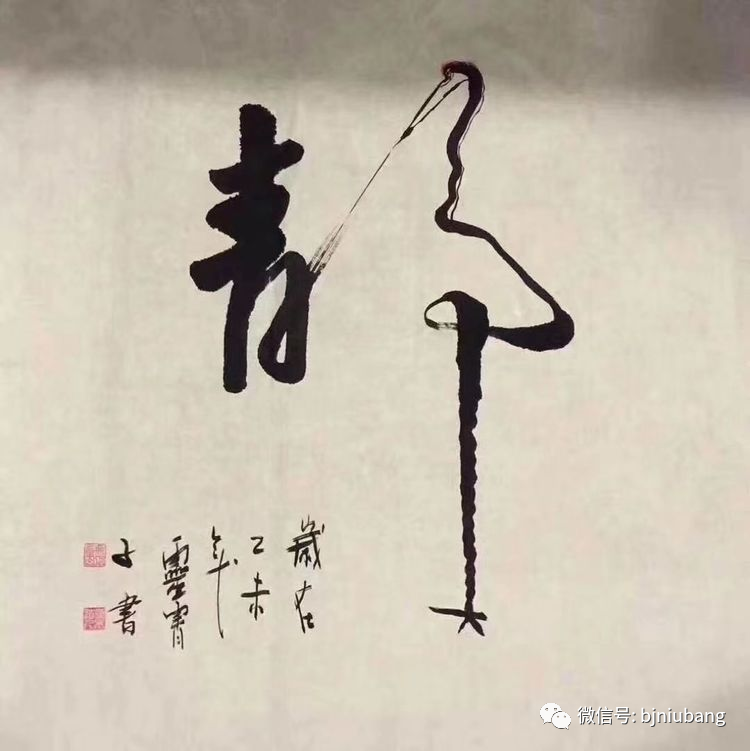 静
歲在
乙未
年
靈宵
子書
微信号: bjniubang